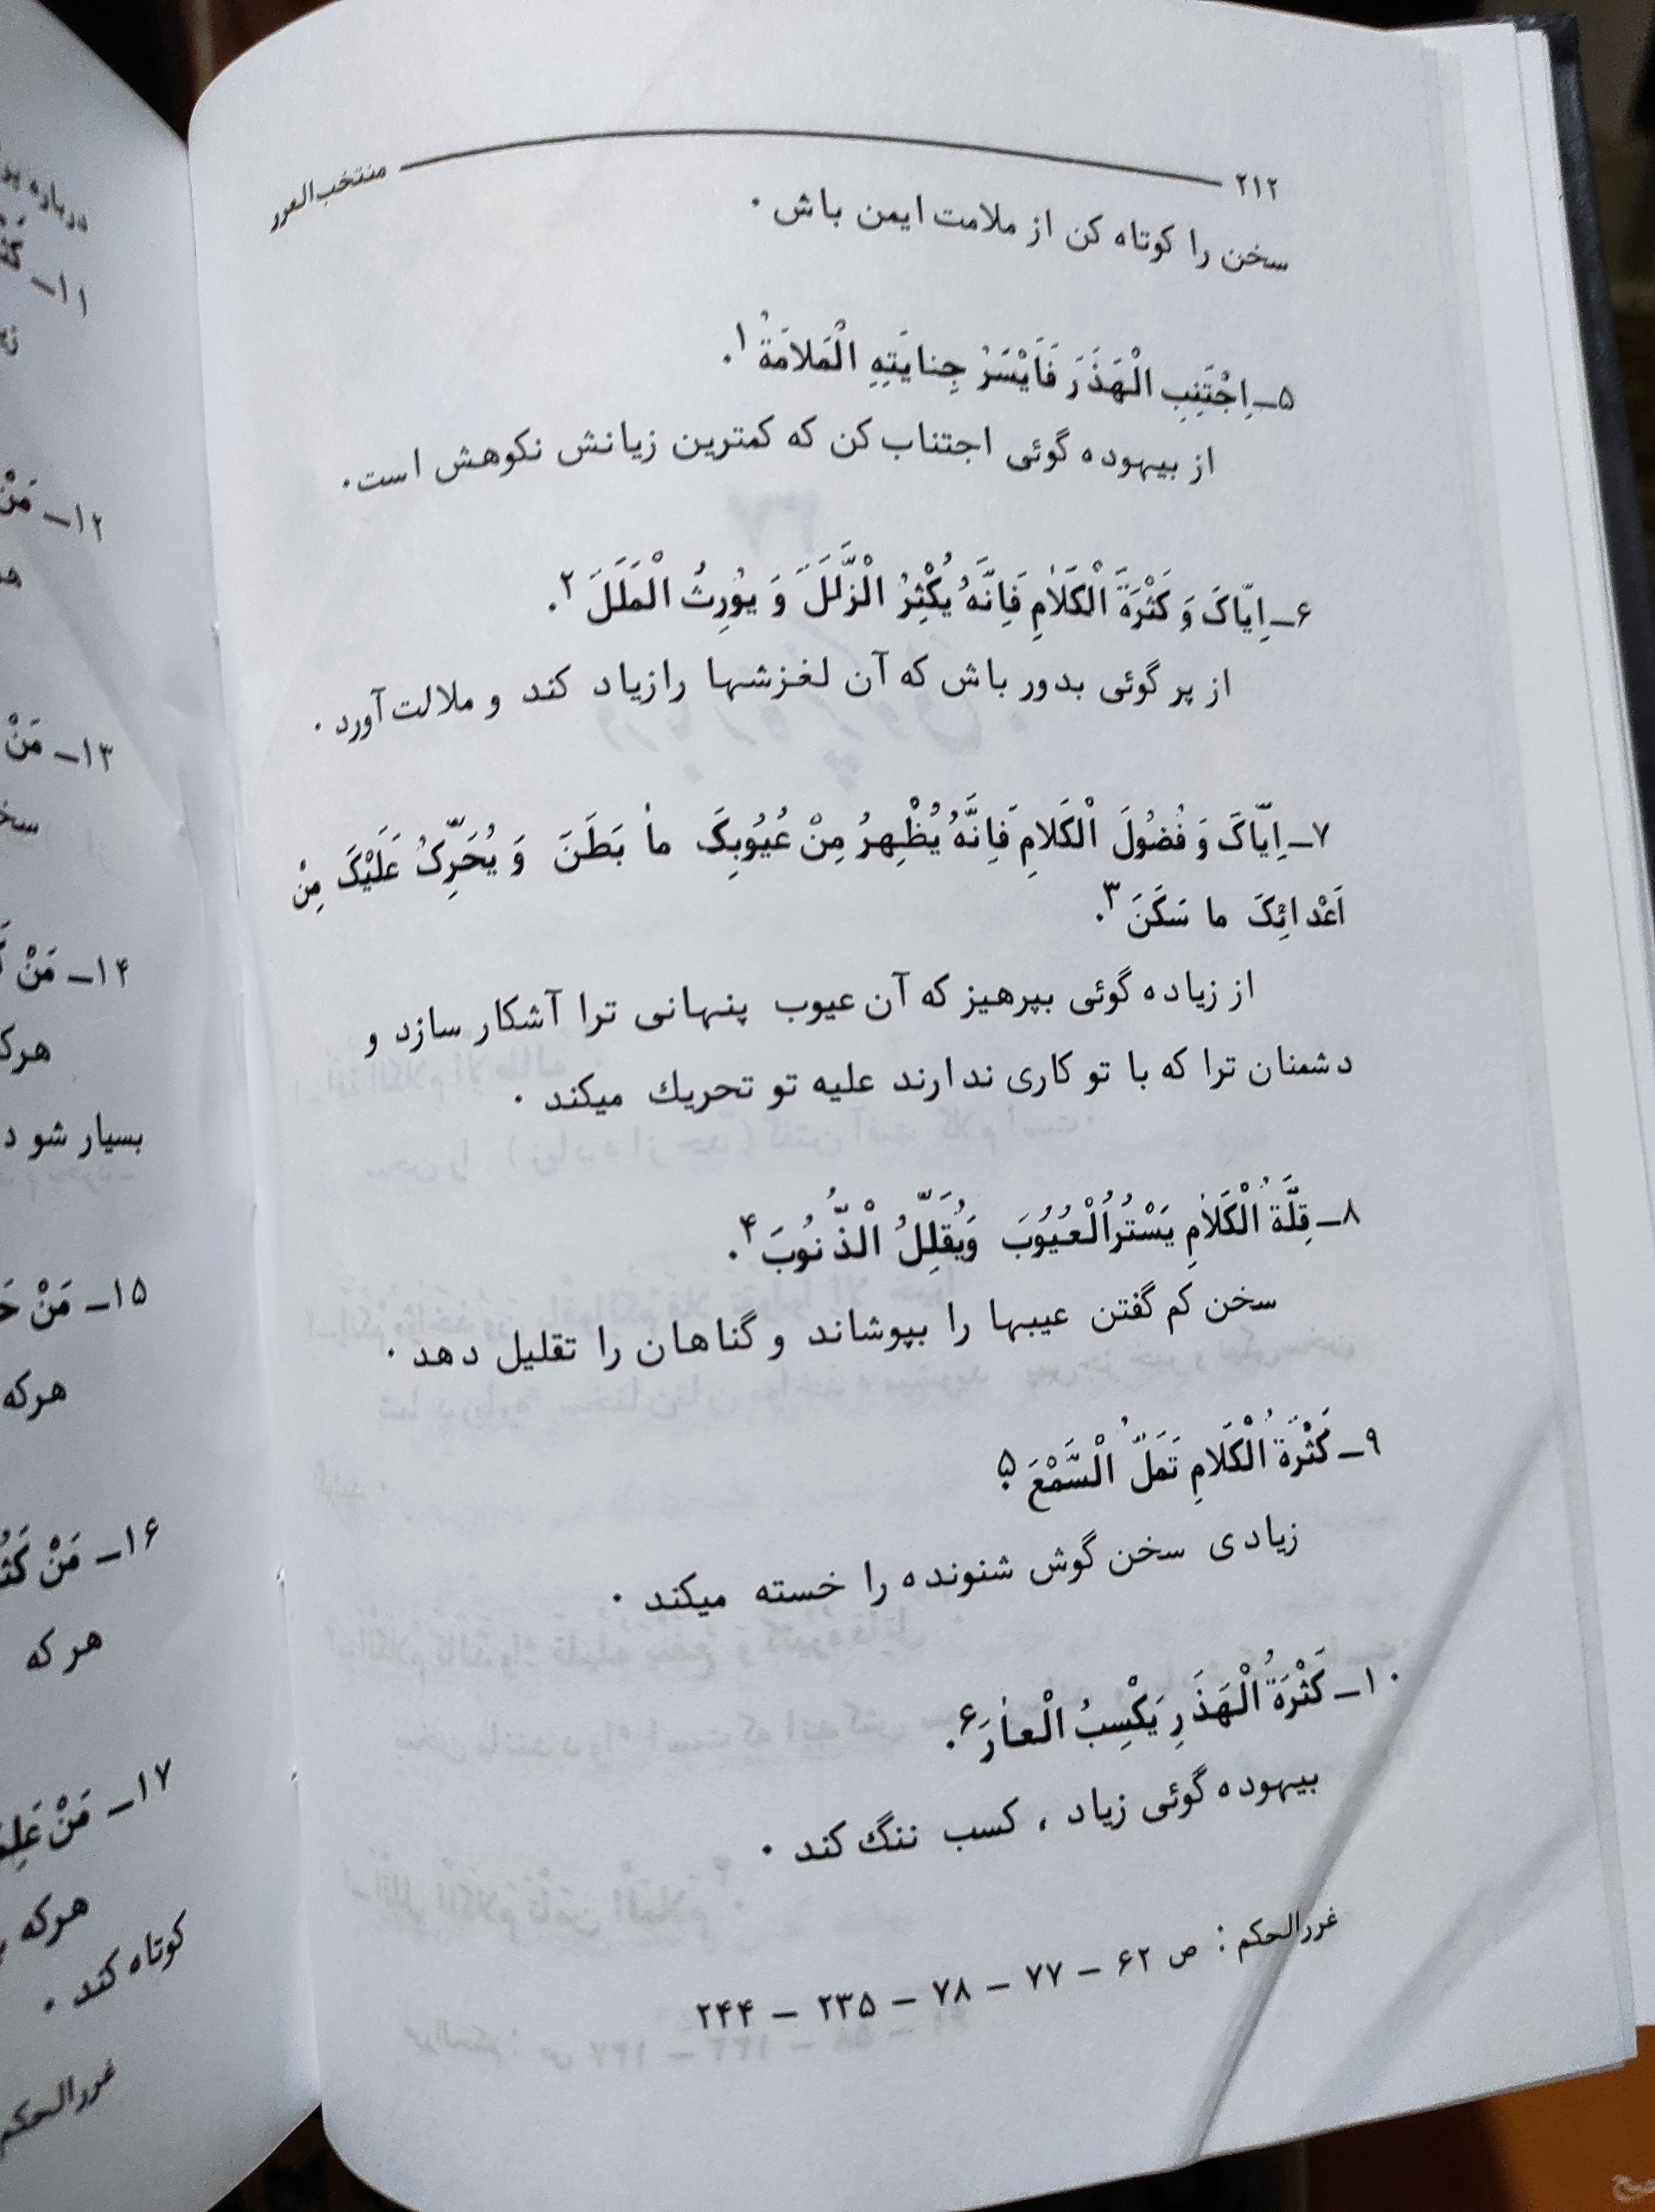 ۲۱۲
منتخب‌الغرر
سخن را کوتاه کن از ملامت ایمن باش .
۵ـ اِجْتَنِبِ الْهَذَرَ فَاَیْسَرُ جِنایَتِهِ الْمَلامَةُ ۱.
از بیهوده گوئی اجتناب کن که کمترین زیانش نکوهش است.
۶ـ اِیّاکَ وَ کَثْرَةَ الْکَلامِ فَاِنَّهُ یُکْثِرُ الْزَّلَلَ وَ یُورِثُ الْمَلَلَ ۲.
از پر گوئی بدور باش که آن لغزشها رازیاد کند و ملالت آورد .
۷ـ اِیّاکَ وَ فُضُولَ الْکَلامِ فَاِنَّهُ یُظْهِرُ مِنْ عُیُوبِکَ ما بَطَنَ وَ یُحَرِّکُ عَلَیْکَ مِنْ
اَعْدائِکَ ما سَکَنَ ۳.
از زیاده گوئی بپرهیز که آن عیوب پنهانی ترا آشکار سازد و
دشمنان ترا که با تو کاری ندارند علیه تو تحریك میکند .
۸ـ قِلَّةُ الْکَلامِ یَسْتُرُ الْعُیُوبَ وَیُقَلِّلُ الْذُّنُوبَ ۴.
سخن کم گفتن عیبها را بپوشاند و گناهان را تقلیل دهد .
۹ـ کَثْرَةُ الْکَلامِ تَمَلُّ الْسَّمْعَ ۵.
زیادی سخن گوش شنونده را خسته میکند .
۱۰ـ کَثْرَةُ الْهَذَرِ یَکْسِبُ الْعارَ ۶.
بیهوده گوئی زیاد ، کسب ننگ کند .
غررالحکم : ص ۶۲ – ۷۷ – ۷۸ – ۲۳۵ – ۲۴۴
درباره
۱۱ـ
۱۲ـ مَنْ
۱۳ـ مَنْ
۱۴ـ مَنْ
هرکه
بسیار شود
۱۵ـ مَنْ
هرکه
۱۶ـ مَنْ
هرکه
۱۷ـ مَنْ
هرکه
کوتاه کند .
غررالحکم